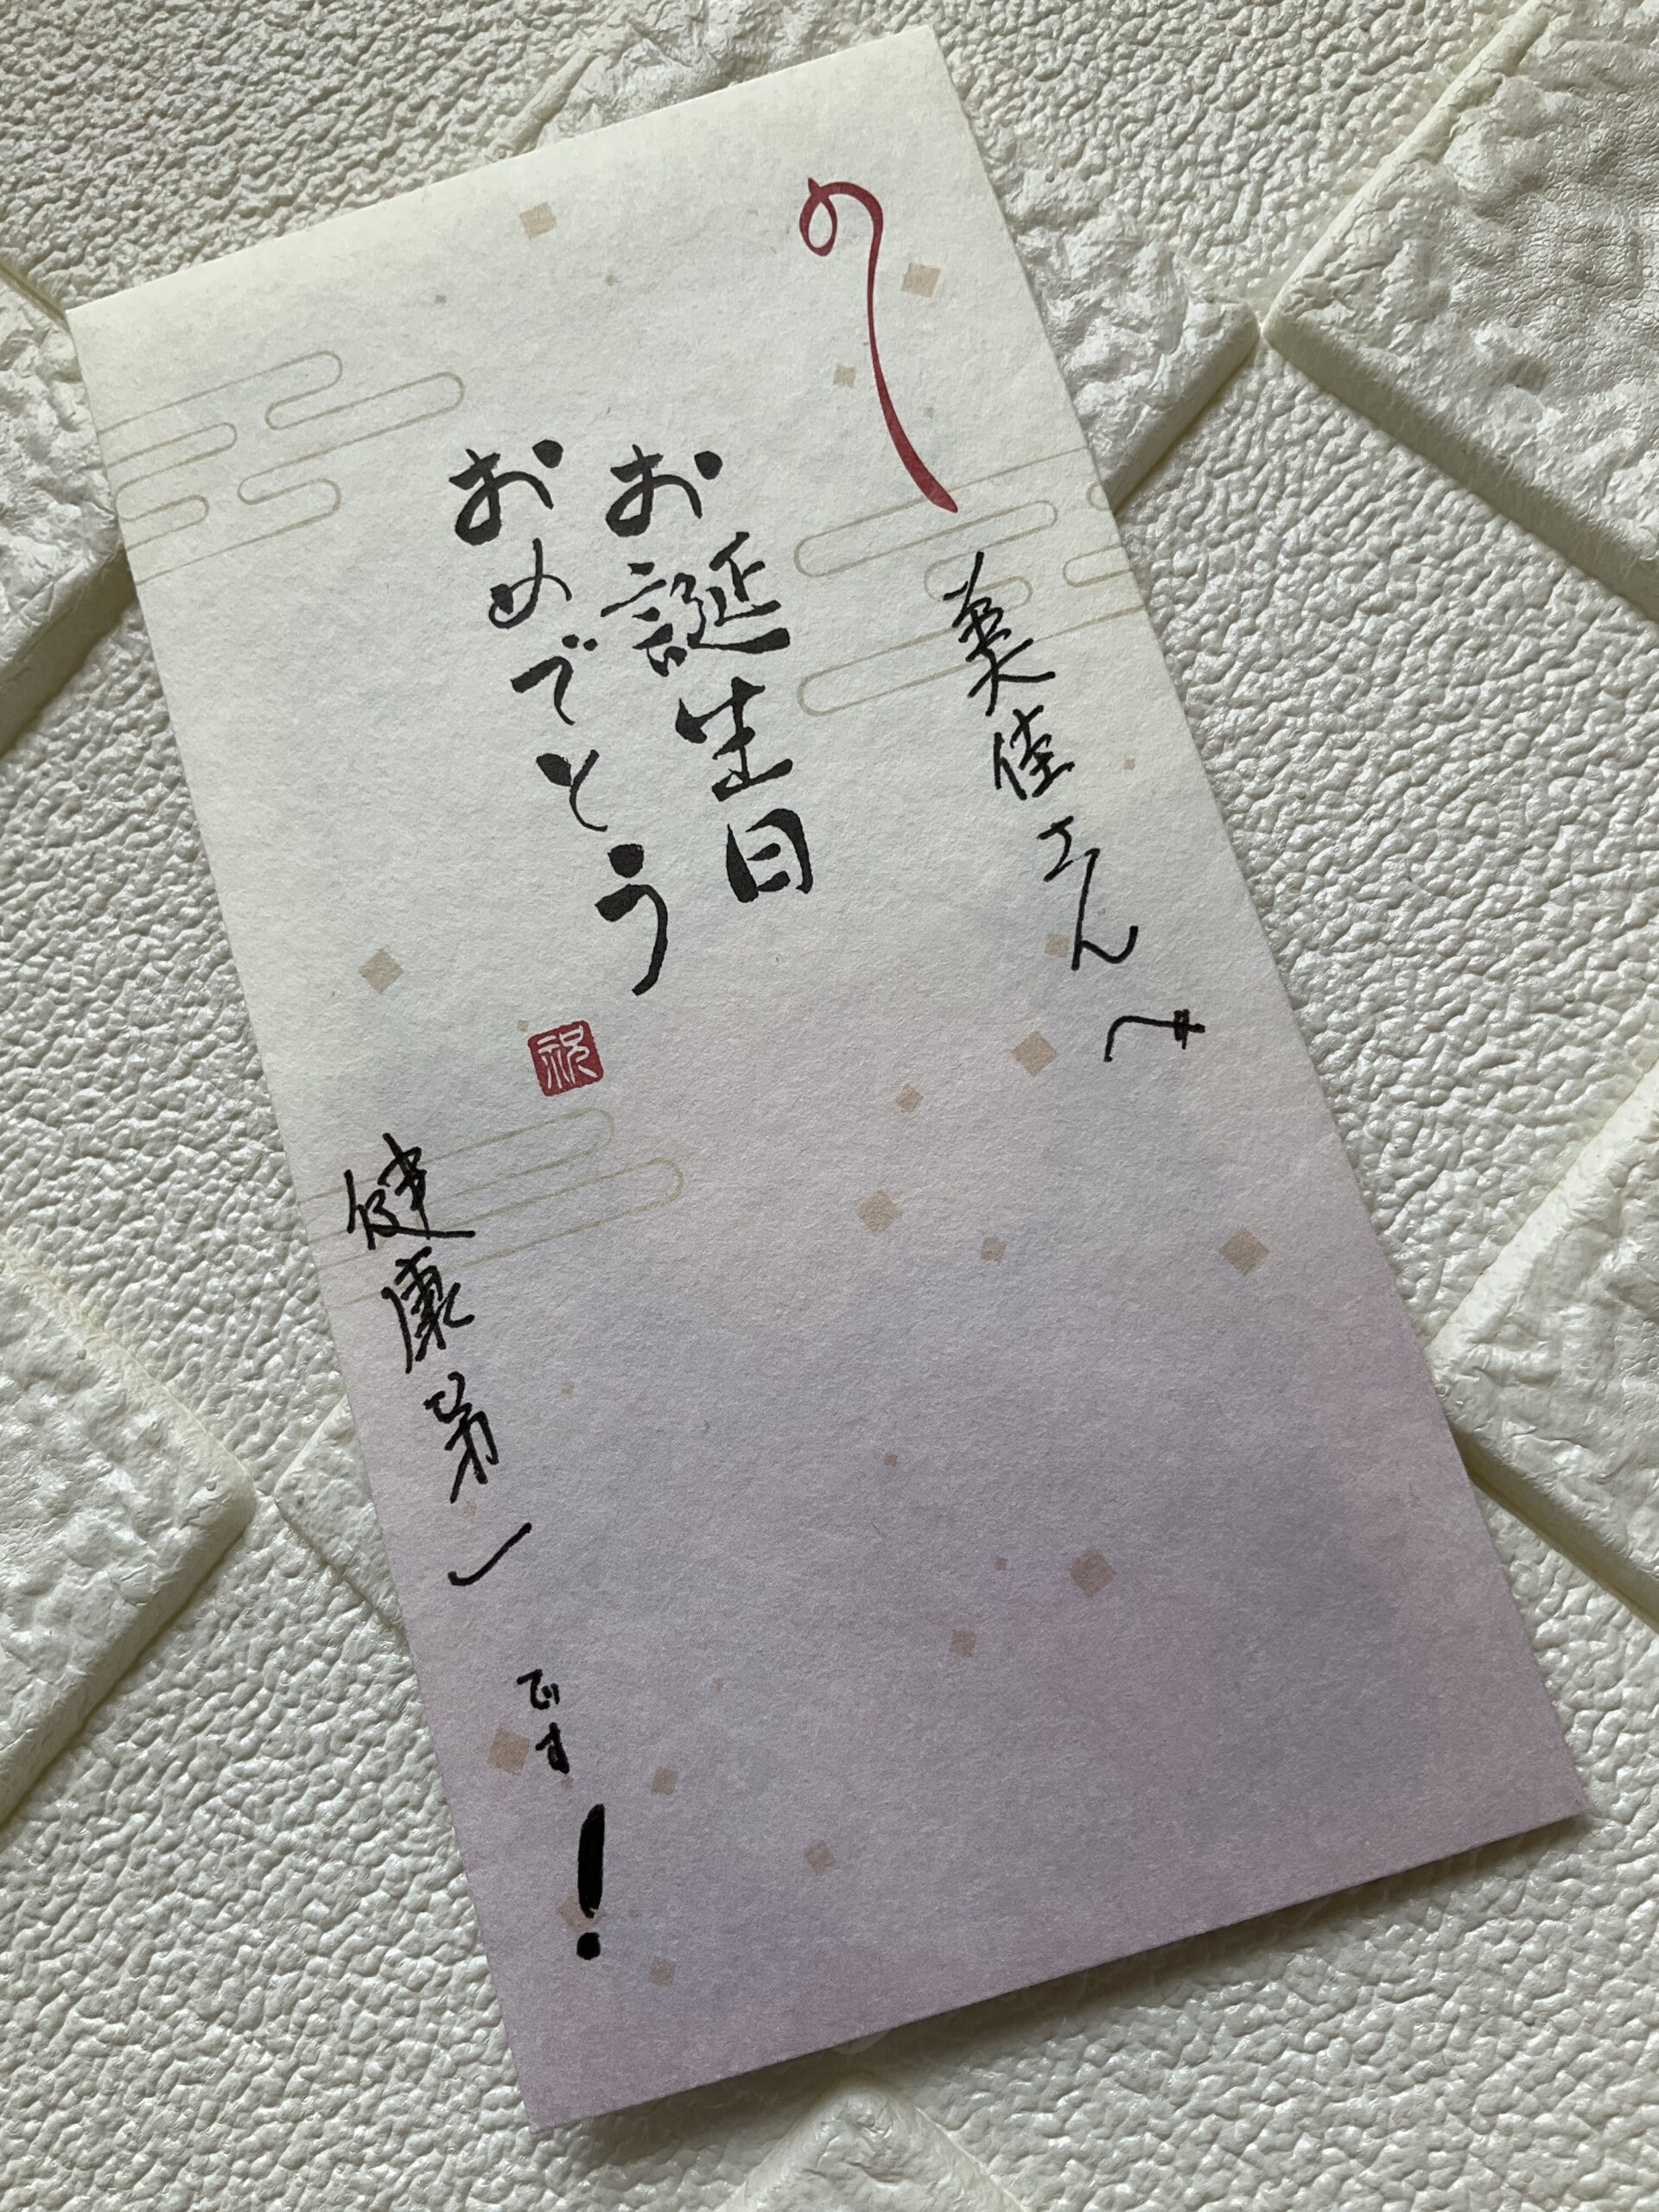 美佳さんへ
お誕生日
おめでとう
祝
健康第一です!